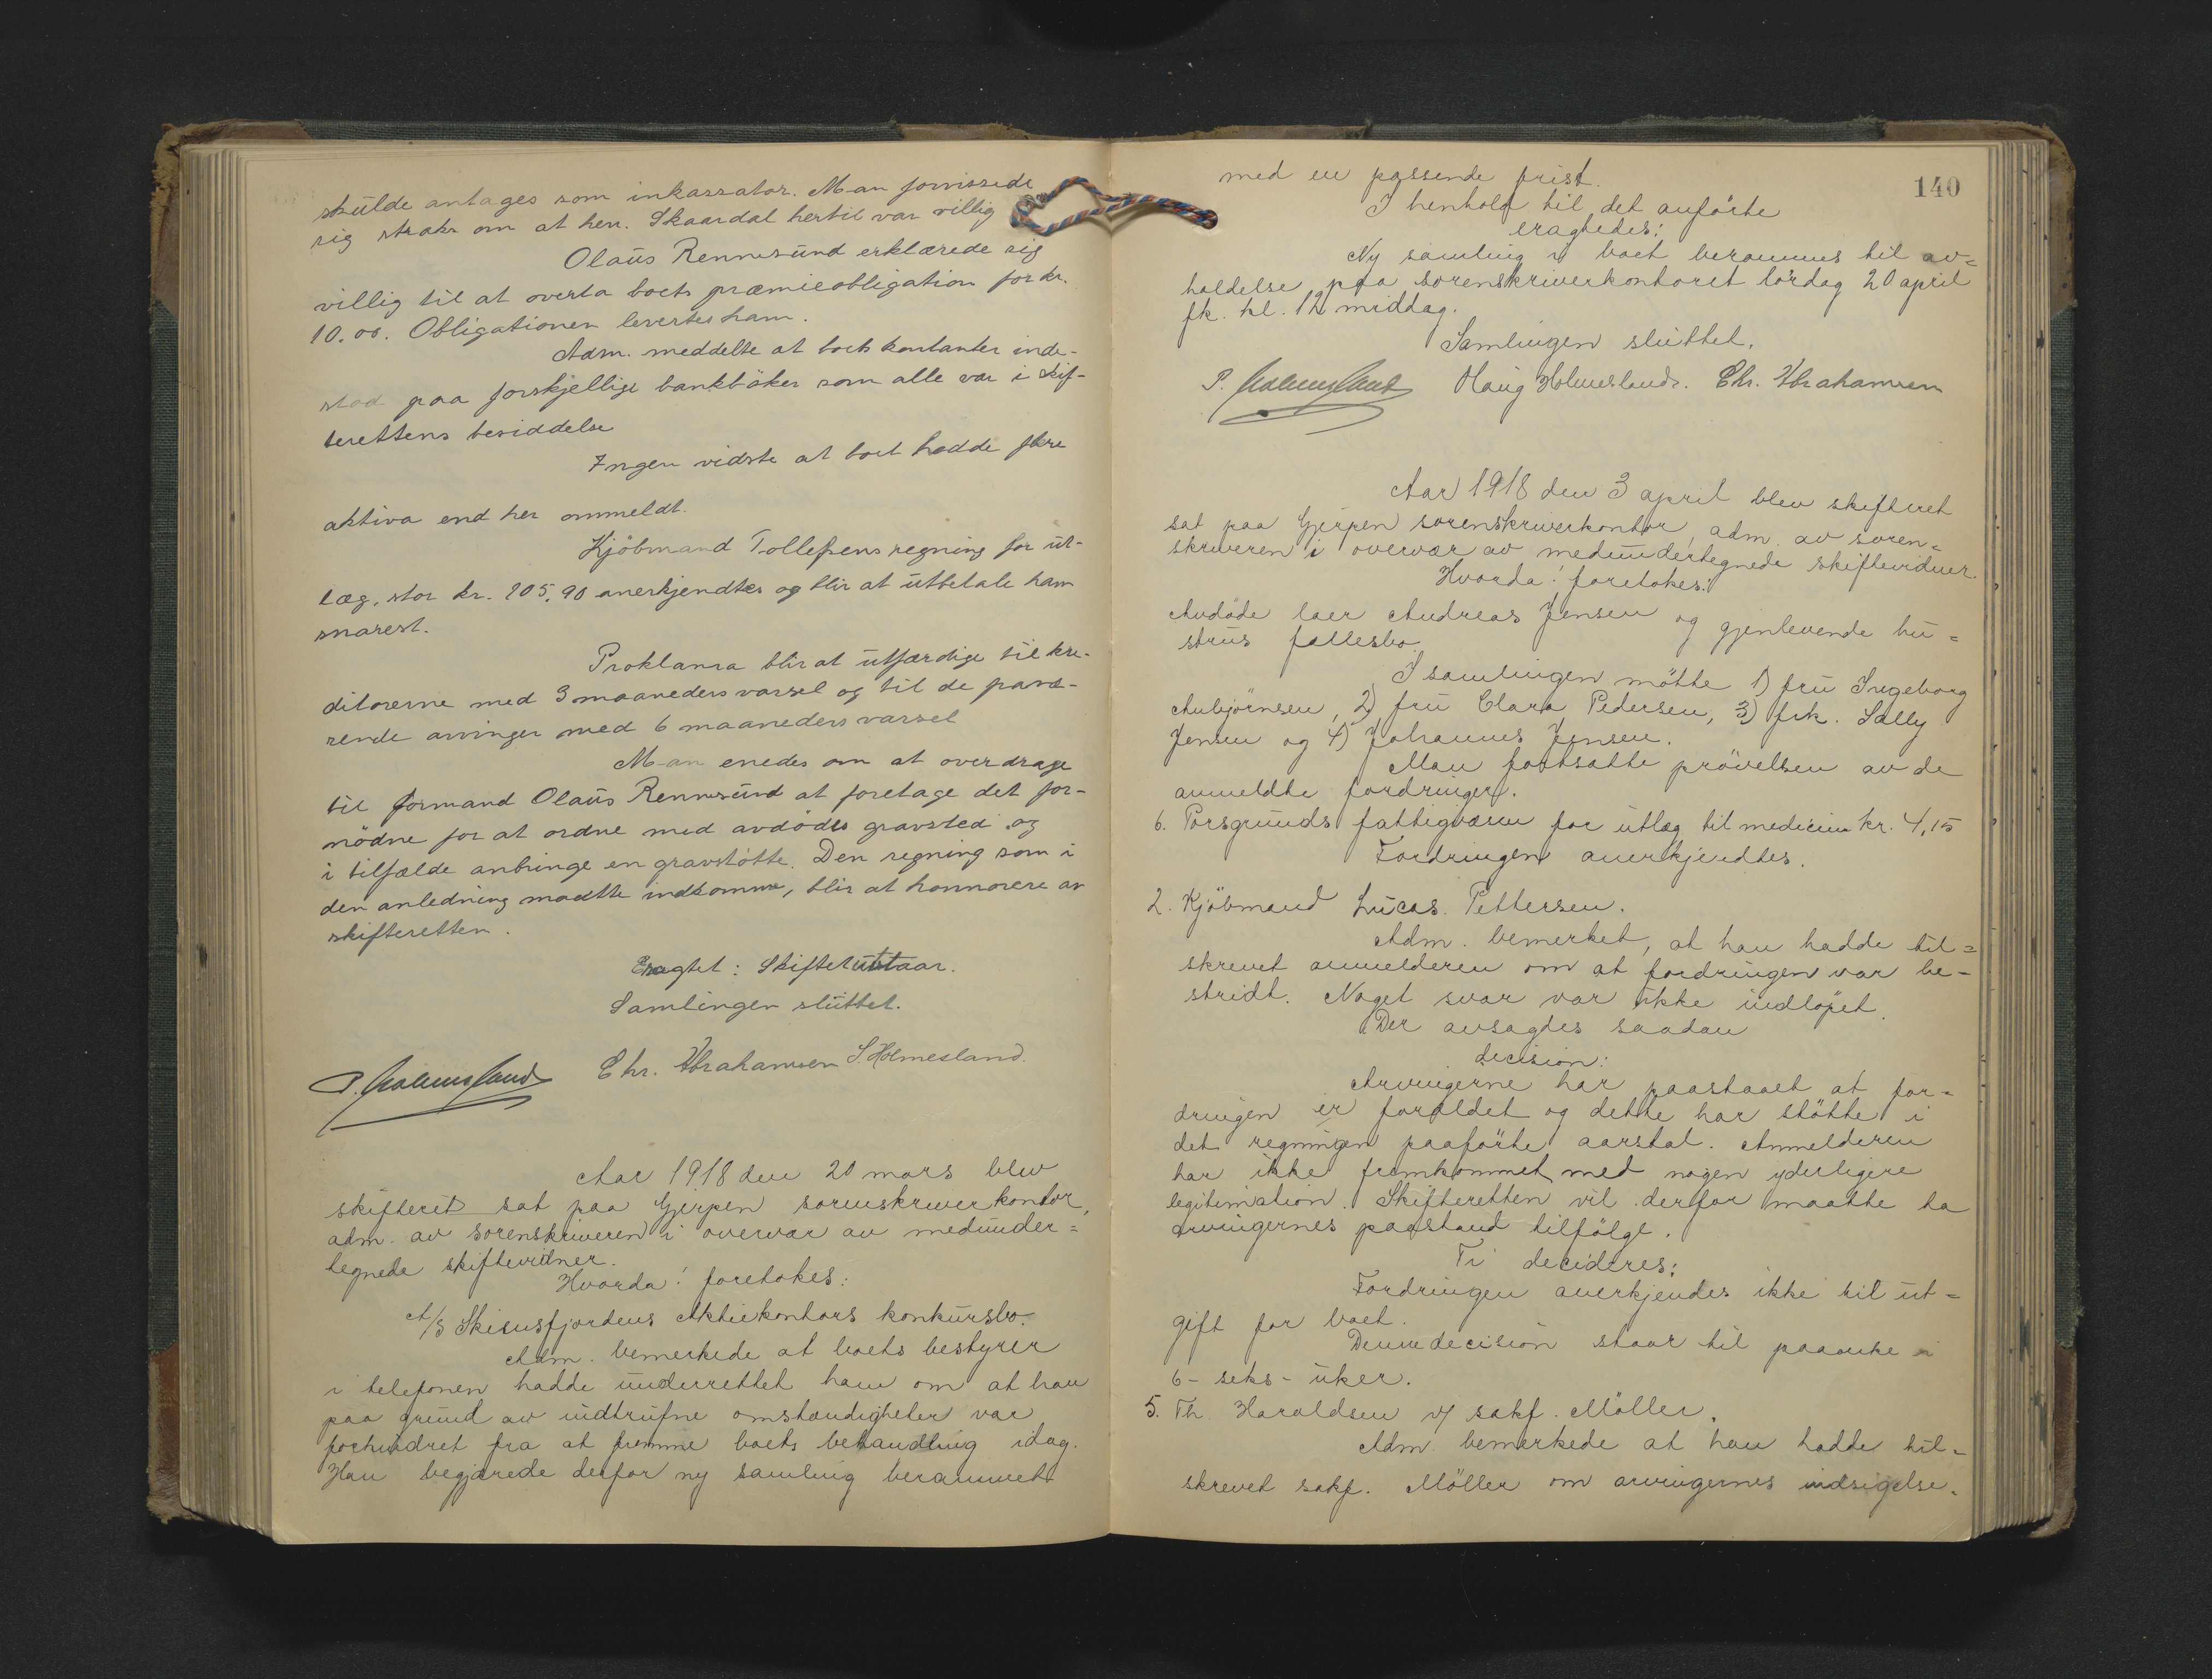 skulde antages som inkassator. Man forvissede
sig straks om at herr. Skaardal hertil var villig
Olaus Rennesund erklærede sig
villig til at overta boets præmieobligation for kr.
10.00. Obligationen levertes ham.
Adm. meddelte at boets kontanter inde-
stod paa forskjellige bankbøker som alle var i skif-
terettens besiddelse
Ingen vidste at boet hadde flere
aktiva end her ommeldt.
Kjöbmand Tollefsens regning for ut-
læg, stor kr. 205,90 anerkjendtes og blir at utbetale ham
snarest.
Proklama blir at utfærdige til kre-
ditorerne med 3 maaneders varsel og til de fravæ-
rende arvinger med 6 maaneders varsel
Man enedes om at overdrage
til formand Olaus Rennesund at foretage det for-
nödne for at ordne med avdödes gravsted og
i tilfælde anbringe en gravstötte. Den regning som i
den anledning maatte indkomme, blir at honnorere av
skifteretten.
Eragtet: Skiftet utstaar.
Samlingen sluttet.
P. Holmesland Chr. Abrahamsen S. Holmesland.
Aar 1918 den 20 mars blev
skifteret sat paa Gjerpen sorenskriverkontor,
adm. av sorenskriveren i overvær av medunder=
tegnede skiftevidner.
Hvorda! foretokes:
A/S Skiensfjordens Aktiekontors konkursbo.
Adm. bemerkede at boets bestyrer
i telefonen hadde underrettet ham om at han
paa grund av indtrufne omstændigheter var
forhindret fra at fremme boets behandling idag.
Han begjærede derfor ny samling berammet
140
med en passende frist.
I henhold til det anförte
eragtedes:
Ny samling i boet berammes til av=
holdelse paa sorenskriverkontoret lördag 20 april
fk. kl. 12 middag.
Samlingen sluttet.
P. Holmesland Haug Holmesland. Chr. Abrahamsen
Aar 1918 den 3 april blev skifteret
sat paa Gjerpen sorenskriverkontor, adm. av soren=
skriveren i overvær av medundertegnede skiftevidner.
Hvorda! foretokes:
Avdöde loer Andreas Jensen og gjenlevende hu=
strus fællesbo.
I samlingen mötte 1) fru Ingeborg
Anbjörnsen, 2) fru Clara Pedersen, 3) frk. Sally
Jensen og 4) Johannes Jensen.
Man fortsatte prövelsen av de
anmeldte fordringer.
6. Porsgrunds fattigvæsen for utlæg til medicin kr. 4,15
Fordringen anerkjendtes.
2. Kjöbmand Lucas Pettersen.
Adm. bemerket, at han hadde til=
skrevet anmelderen om at fordringen var be-
stridt. Noget svar var ikke indlöpet.
Der avsagdes saadan
decision:
Arvingerne har paastaaet at for=
dringen er forældet og dette har stötte i
det regningen paaförte aarstal. Anmelderen
har ikke fremkommet med nogen yderligere
legitimation. Skifteretten vil derfor maatte ta
arvingernes paastand tilfölge.
Ti decideres:
Fordringen anerkjendes ikke til ut=
gift for boet.
Denne decision staar til paaanke i
6 - seks - uker.
5. Th. Haraldsen v/ sakf. Möller.
Adm. bemerkede at han hadde til=
skrevet sakf. Möller om arvingernes indsigelse.